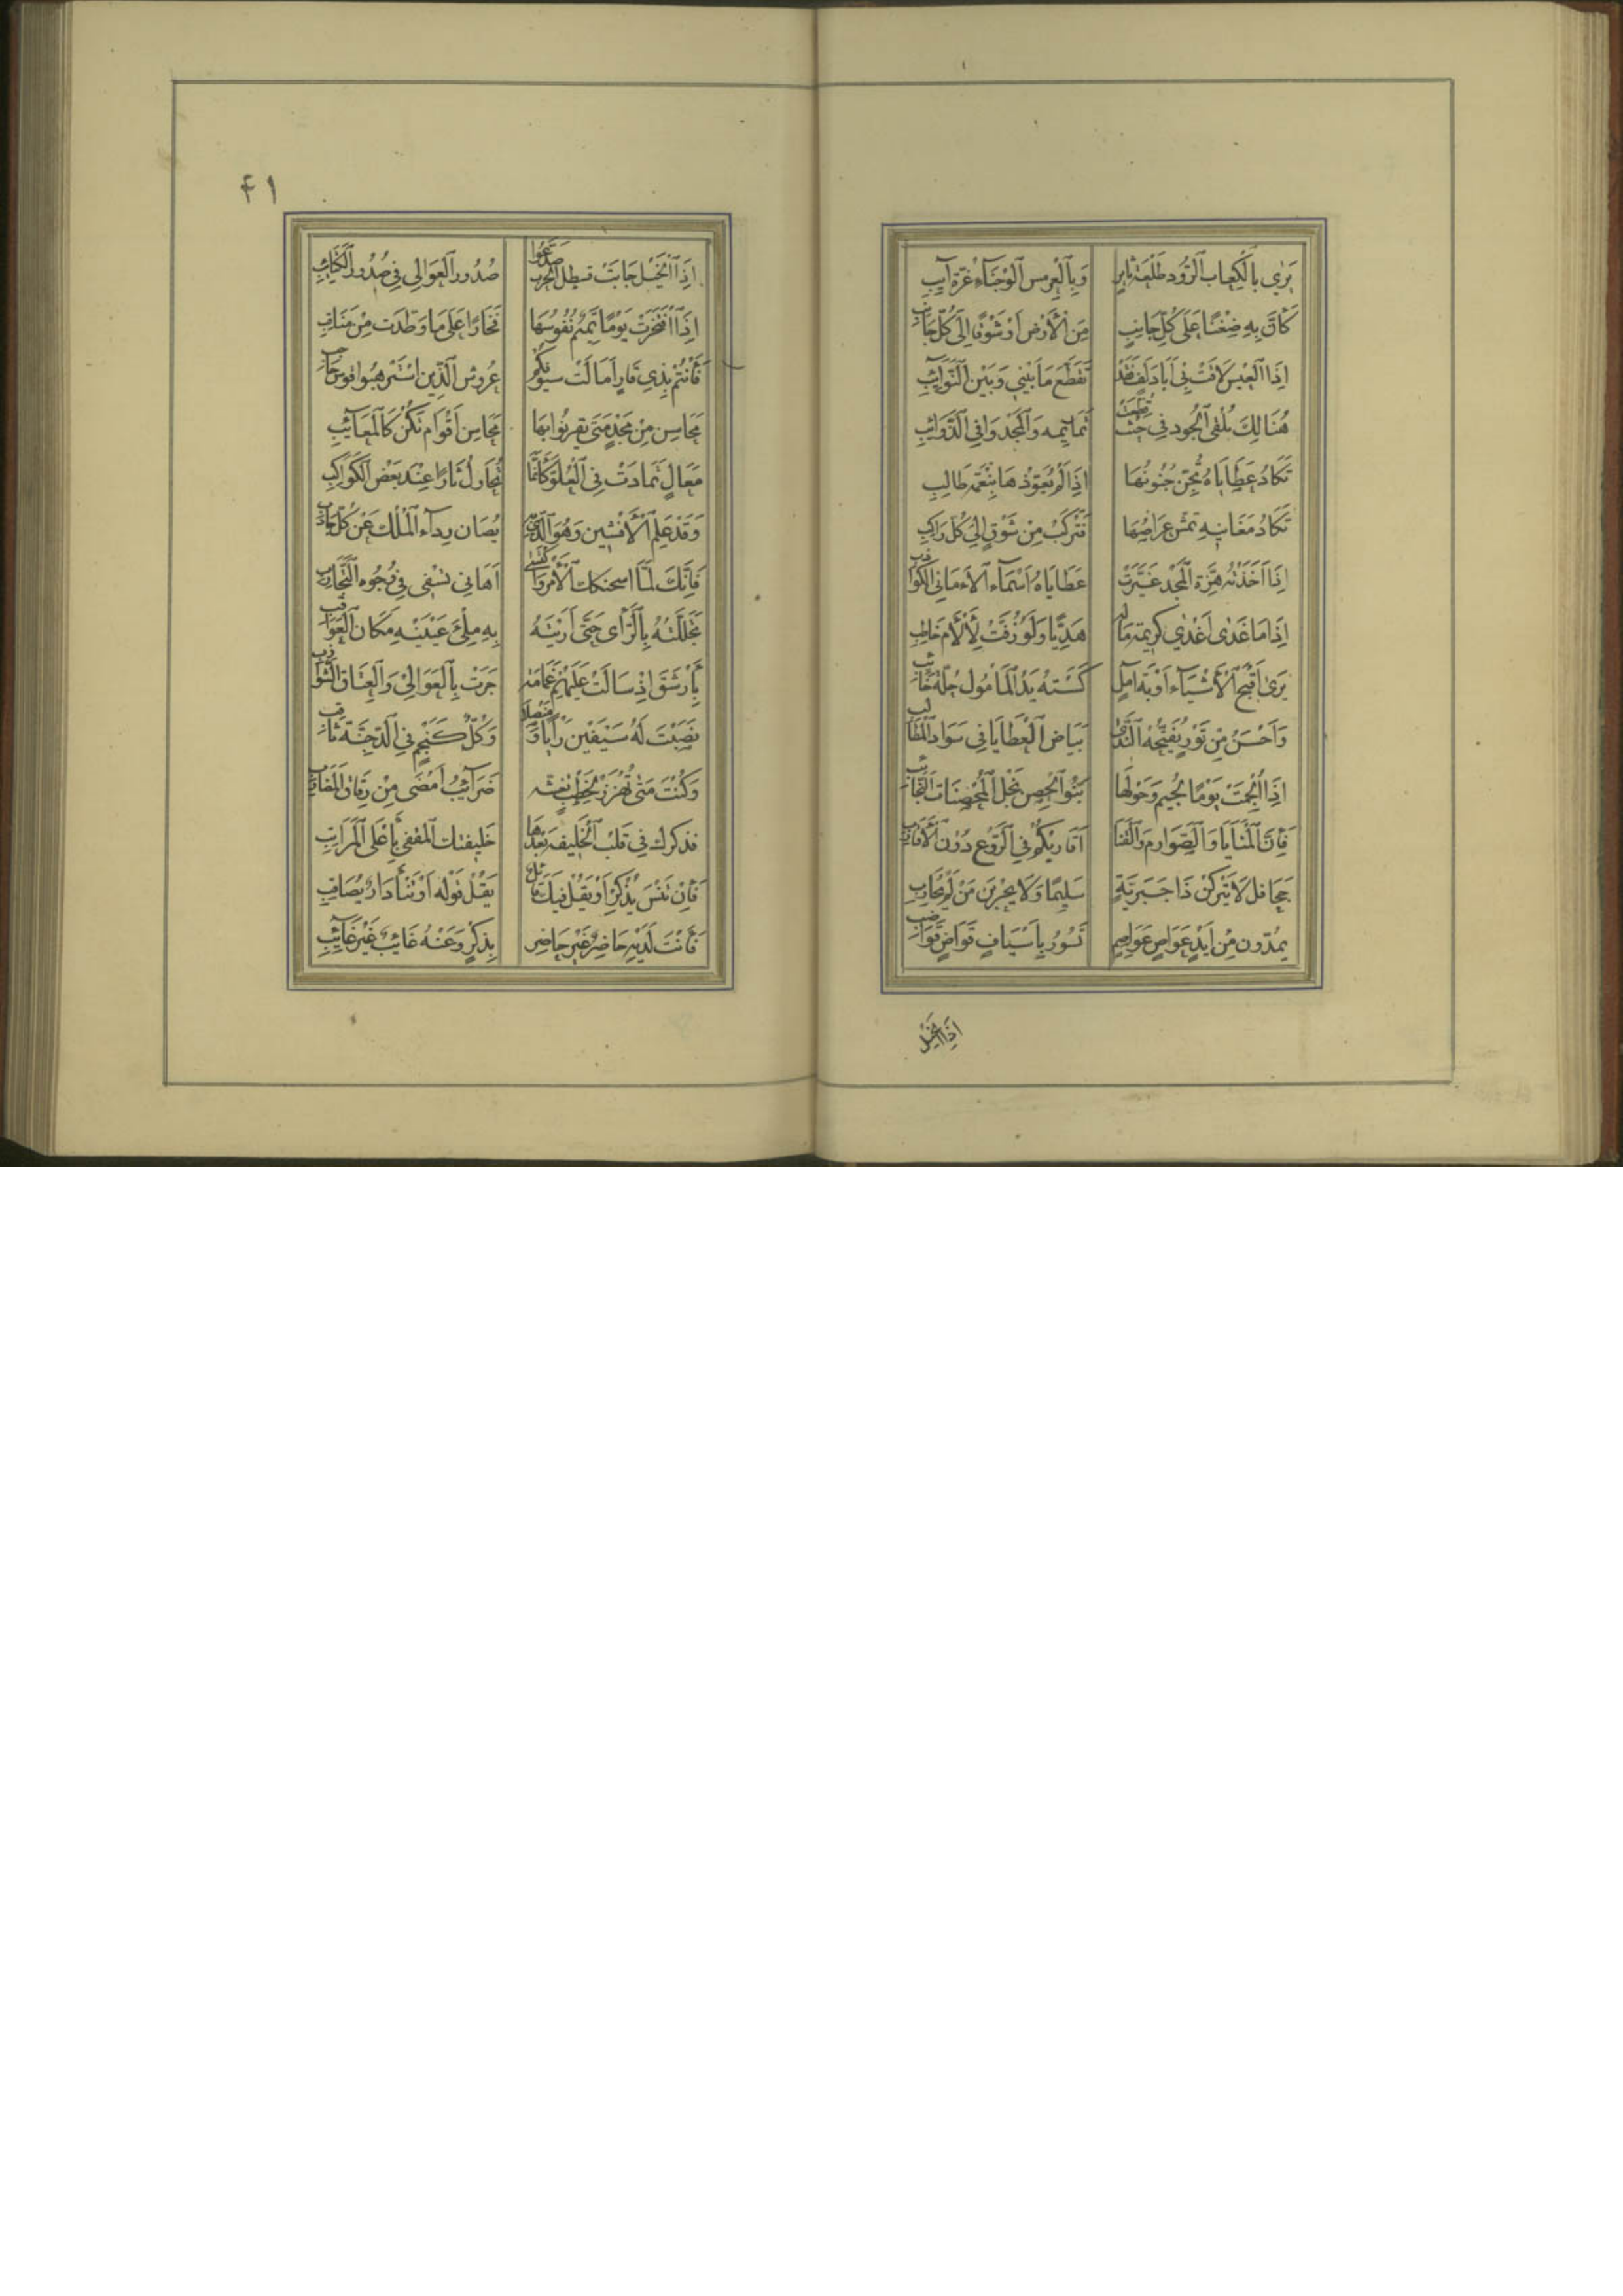 يَرَي بالكِعاب الرُّود طَلْعَة ثايرٍ وَبِالعِرمِس الوَجْنَآءِ غُرّة آيبِ
كَأَنَّ بِهِ ضِغْنًا عَلَى كُلِّ جَانِبٍ مِنَ الأَرْض اَوْ شَوْقًا اِلَى كُلّ جَانِبِ
اِذَا العِيسَ لاقَتْ بِي اَبَا دُلَفٍ فَقَدْ تَقَطَّعَ مَا بَيْنِي وَبَيْن النَّوَائِبِ
هُنَالِكَ تَلْقَى الجُود فِي حَيْث قُطِّعَتْ تَمَائِمه وَالمَجْد وَافِي الذَّوَائِبِ
تَكَادُ عَطَايَاهُ يُجَنّ جُنُونُهَا اِذَا لَمْ يُعَوِّذهَا بِنِعْمَة طَالِبِ
تَكَادُ مَغَانِيهِ تَهشّ عِرَاصُهَا فَتَركَبُ مِنْ شَوْقٍ اِلَي كُلّ رَاكِبِ
اِذَا اَخَذَتْه هِزَّة المَجْد غَيَّرَتْ عَطَايَاهُ اَسْمَآء الاَمَانِي الكَوَاذِبِ
اِذَا مَا غَدَى اَغْدَي كَرِيمَة مَالِهِ هَدِيًّا وَلَوْ زُفَّتْ لِأَلْأَم خَاطِبِ
يَرَى اَقْبَح الأَشْيَآء اَوْبَة آمِلٍ كَسَتْهُ يَدُ المَأمُول حُلَّة خَائِبِ
وَاَحْسَنُ مِن نَوْرٍ يُفَتِّحُه النَّدَى بَيَاض العَطَايَا فِي سَوَاد المَطَالِبِ
اِذَا اُلجِمَتْ يَوْمًا لُجَيم وَحَوْلَهَا بَنُوا الحِصن نَجْل المُحْصِنَات النَّجَائِبِ
فَإِنَّ المَنَايَا وَالصَّوَارِم وَالقَنَا اَقَارِبكُمْ فِي الرَّوْع دُوْنَ الأَقَارِبِ
جَحَافل لَا يَتْرُكْنَ ذَا جَبَرِيَّةٍ سَلِيمًا وَلَا يَحْرُبْنَ مَنْ لَمْ يُحَارِبِ
يَمُدّون مِنْ اَيْدٍ عَوَاصٍ عَوَاصِمٍ تَسُورُ بِاَسْيَافٍ قَوَاضٍ قَوَاضِبِ
اِذَا الخيل
٤١
اِذَا الخَيْل جَابَتْ قسطل الحَرْب صَدَّعُوا صُدُور العَوَالِي فِي صُدُور الكَتَائِبِ
اِذَا افْتَخَرَتْ يَوْمًا تَمِيْمٌ نُفُوسُهَا فَخَارًا عَلَى مَا وَطَّدَت مِنْ مَنَاقِبِ
فَأَنْتُمْ بِذِي قَارٍ اَمَالَتْ سيُوفُكُمْ عُرُوش الَّذِين اسْتَرهَبُوا قوس حَاجِبِ
مَحَاسِن مِنْ مَجْدٍ مَتَى تقرنُوا بِهَا مَحَاسِن اَقْوَام تَكُنْ كَالمَعَآئِبِ
مَعَالٍ تَمَادَتْ فِي العُلُوّ كَأَنَّمَا تُحَاوِلُ ثَارًا عِنْدَ بَعْض الكَوَاكِبِ
وَقَدْ عَلِمَ الأَفْشِين وَهُوَ الَّذِي بِهِ يُصَان رِدَآء المُلْكِ عَنْ كُلّ جَاذِبِ
فَإِنَّكَ لَمَّا اسحنكك الأَمْر وَاكْتَسَى اَهَابِي تَسْفِي فِي وُجُوه التَّجَارِبِ
تَجَلَّلْتَهُ بِالرَّأي حَتَّى اَرَيْتَهُ بِهِ مِلْئَ عَيْنَيْهِ مَكَان العَوَاقِبِ
بِأَرشَقَ اِذْ سَالَتْ عَلَيْهِمْ غَمَامَة جَرَتْ بِالعَوَالِي وَالعِتَاق الشَّوَازِبِ
نَصَبْتَ لَهُ سَيْفَيْن رَأْيًا وَمُنْصُلًا وَكُلّ كَنَجْمٍ فِي الدُّجُنَّة ثَاقِبِ
وَكُنْتَ مَتَى تُهْزَزْ لِخَطْبٍ تغشه ضَرَآئِبُ اَمْضَى مِنْ رِقَاق المَضَارِبِ
فذكرك فِي قَلْب الخَلِيفَة بَعْدَهَا خَلِيفتك المقفى بِأَعْلَى المَرَاتِبِ
فَإِنْ تَنْسَ يَذْكُرْ اَوْ يَقُلْ فِيكَ قَائِل يَقُلْ قَوْله اَوْ تَنْأَ دَارٌ يُصَاقِبِ
فَأَنْتَ لَدَيْهِ حَاضِرٌ غَيْر حَاضِر بِذِكْرٍ وَعَنْهُ غَائِبٌ غَيْر غَآئِبِ